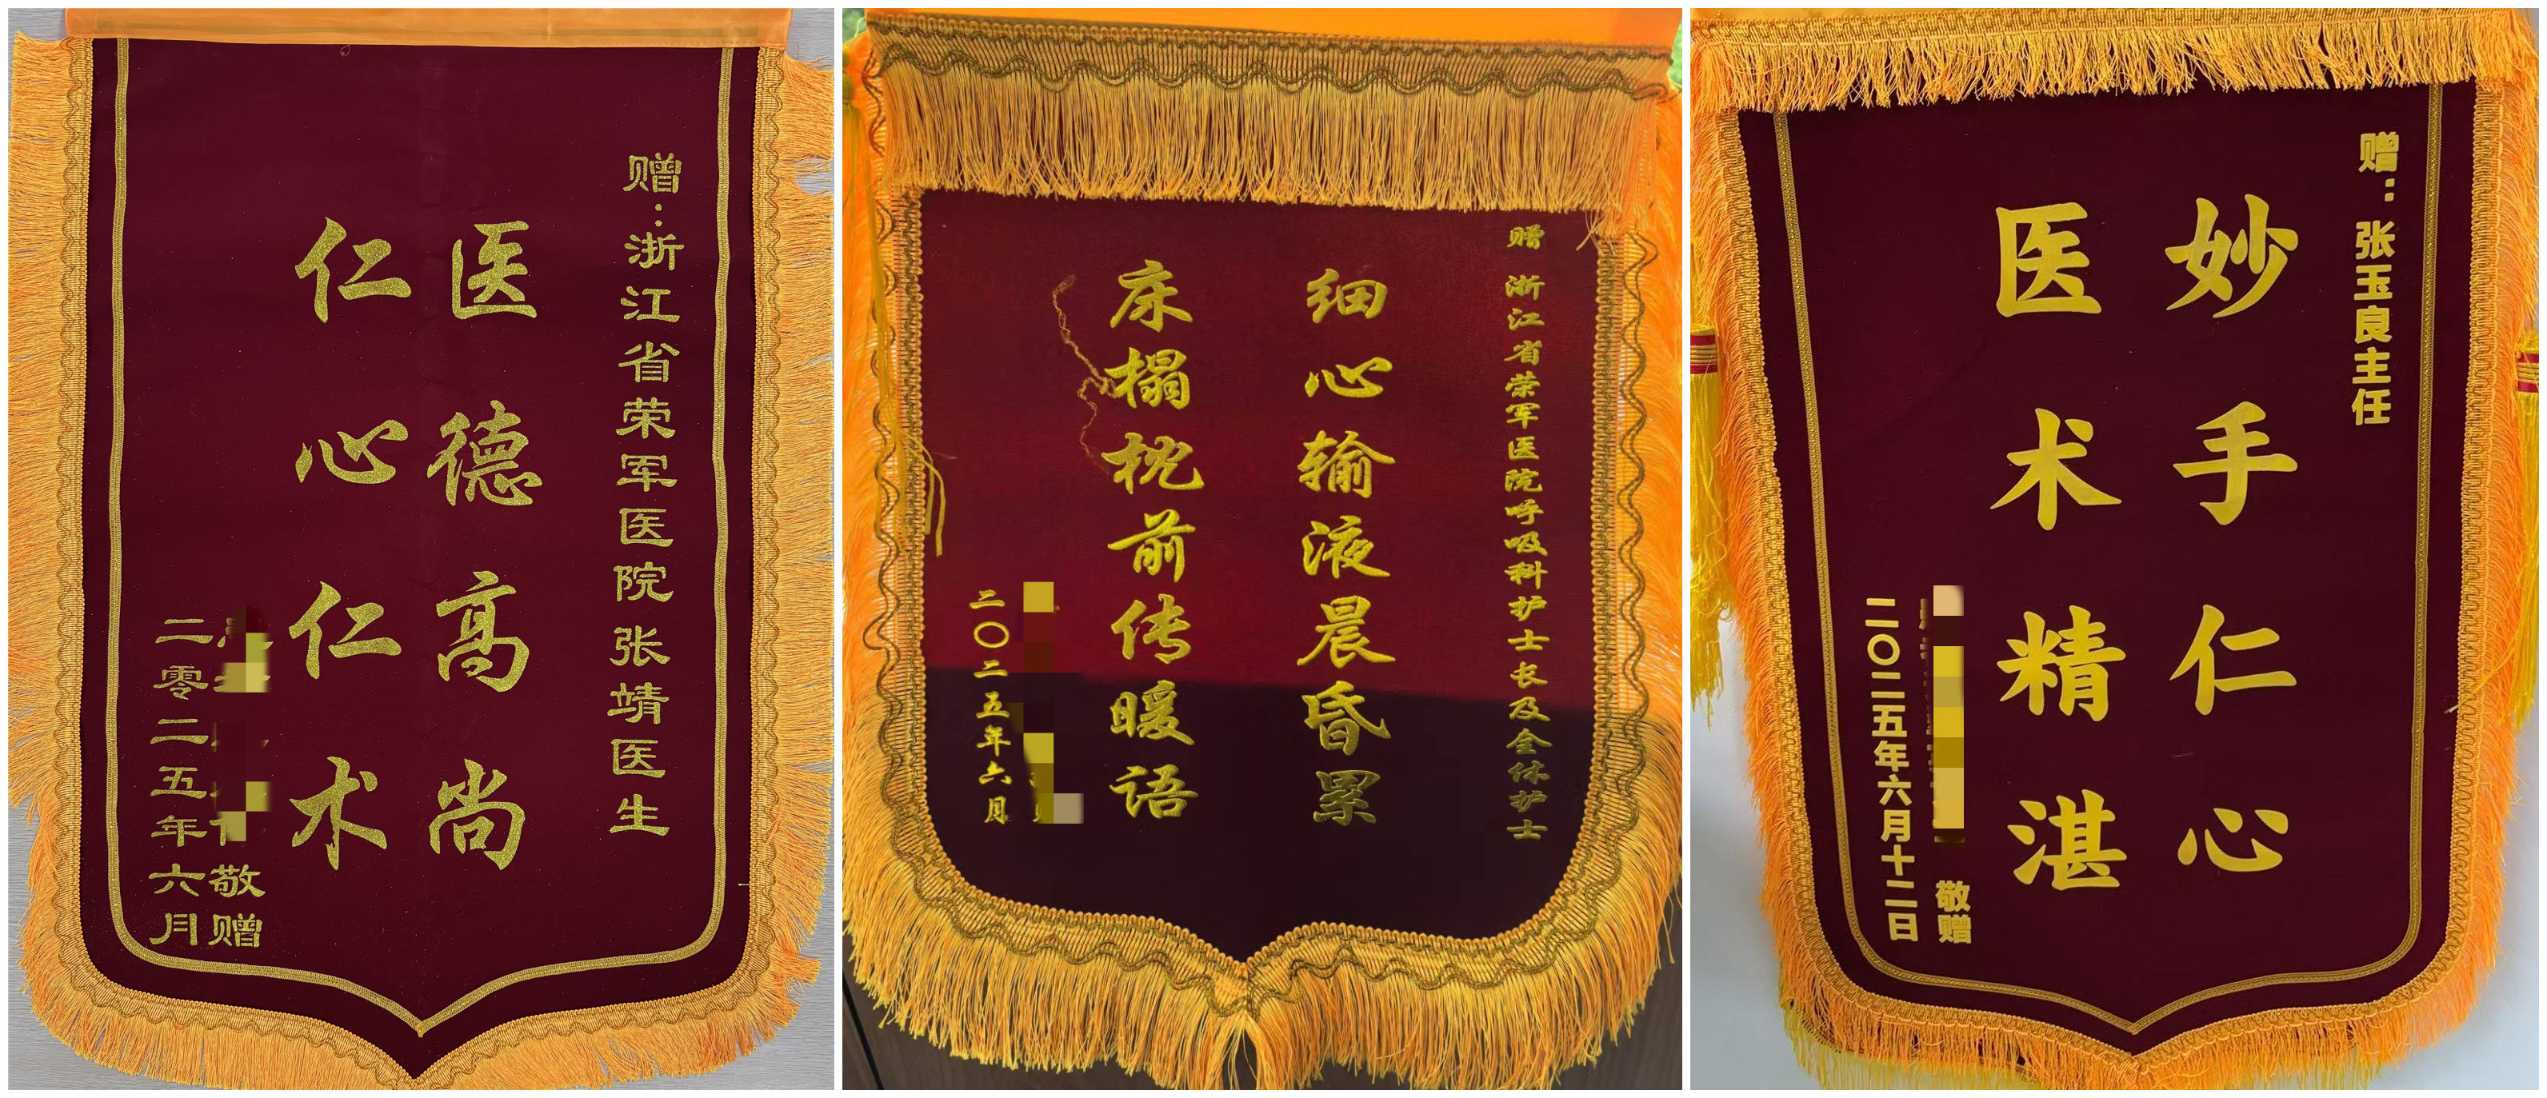 赠：浙江省荣军医院张靖医生
医德高尚
仁心仁术
敬赠
二零二五年六月
赠 浙江省荣军医院呼吸科护士长及全体护士
细心输液晨昏累
床榻枕前传暖语
二〇二五年六月
赠：张玉良主任
妙手仁心
医术精湛
敬赠
二〇二五年六月十二日